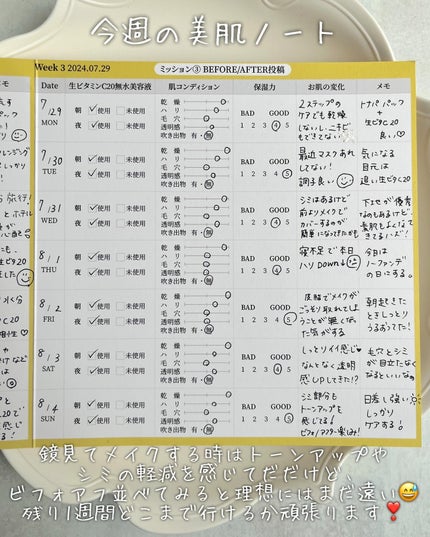 今週の美肌ノート
Week 3 2024.07.29
ミッション③ BEFORE/AFTER投稿
Date 生ビタミンC20無水美容液 肌コンディション 保湿力 お肌の変化 メモ
7/29 MON
朝 使用 未使用
夜 使用 未使用
乾燥
ハリ
毛穴
透明感
吹き出物 有・無
BAD GOOD
1 2 3 4 5
2ステップの
ケアでも乾燥
しないし、ニキビ
もできない
トナパパック
+
生ビタC20
良い♡
7/30 TUE
朝 使用 未使用
夜 使用 未使用
乾燥
ハリ
毛穴
透明感
吹き出物 有・無
BAD GOOD
1 2 3 4 5
最近マスクあれ
してない!
調子良い
気になる
目元は
追い生ビタC20
7/31 WED
朝 使用 未使用
夜 使用 未使用
乾燥
ハリ
毛穴
透明感
吹き出物 有・無
BAD GOOD
1 2 3 4 5
シミはあるけど
前よりメイクで
カバーするのが
簡単になってきたかも
下地が優秀
なのもあるけど、
素肌もよくなって
きてるハズ!
8/1 THU
朝 使用 未使用
夜 使用 未使用
乾燥
ハリ
毛穴
透明感
吹き出物 有・無
BAD GOOD
1 2 3 4 5
寝不足で本日
ハリDOWN↓
今日は
ノーファンデ
の日にする。
8/2 FRI
朝 使用 未使用
夜 使用 未使用
乾燥
ハリ
毛穴
透明感
吹き出物 有・無
BAD GOOD
1 2 3 4 5
皮脂でメイクが
ごっそり取れてしま
うことが無くなっ
た気がする
朝起きた
ときしっとり
うるおってた!
8/3 SAT
朝 使用 未使用
夜 使用 未使用
乾燥
ハリ
毛穴
透明感
吹き出物 有・無
BAD GOOD
1 2 3 4 5
しっとりイイ感じ
なんとなく透明
感UPしてきた!?
毛穴とシミ
が目立たなく
なるといいな。
8/4 SUN
朝 使用 未使用
夜 使用 未使用
乾燥
ハリ
毛穴
透明感
吹き出物 有・無
BAD GOOD
1 2 3 4 5
シミ部分も
トーンアップを
感じてる!
ビフォアフター楽しみ!
日差し強い
しっかり
ケアする!
鏡見てメイクする時はトーンアップや
シミの軽減を感じてだだけど、
ビフォアフ並べてみると理想にはまだ遠い😅
残り1週間どこまで行けるか頑張ります❣️